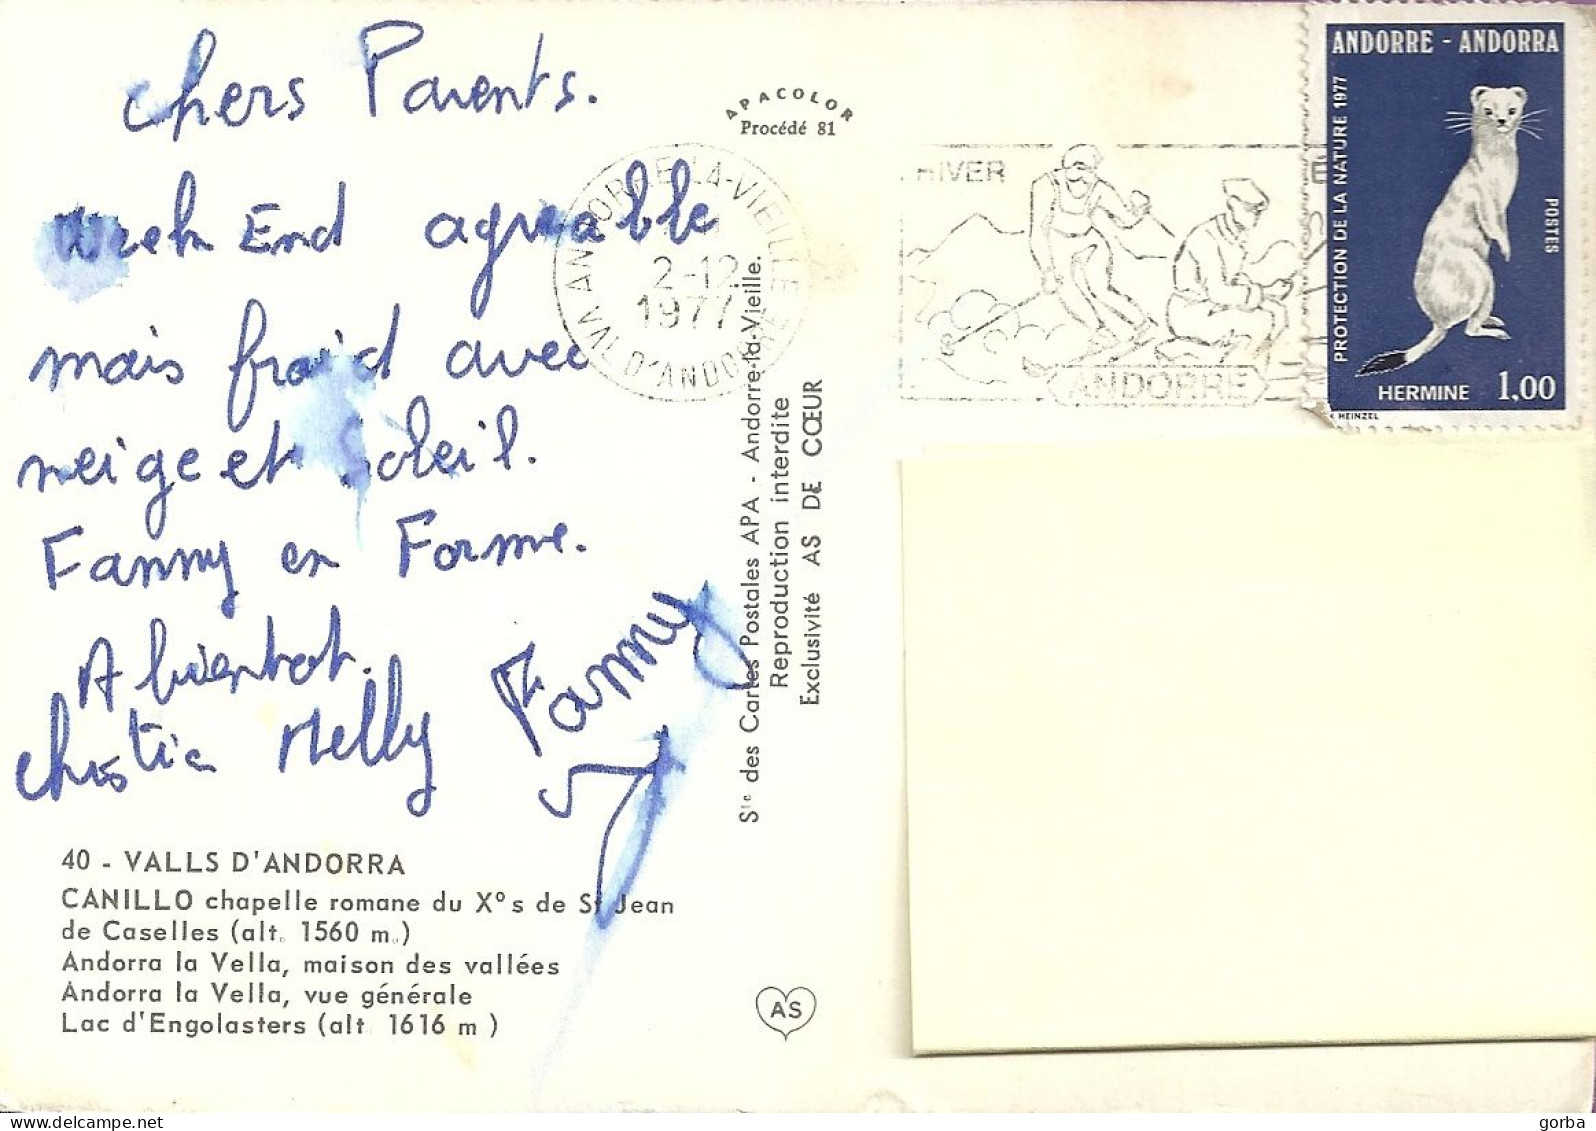 Chers Parents.
Week End agréable
mais froid avec
neige et Soleil.
Fanny en Forme.
A bientot.
Christia Nelly Fanny
40 - VALLS D'ANDORRA
CANILLO chapelle romane du X° s de St Jean
de Caselles (alt. 1560 m.)
Andorra la Vella, maison des vallées
Andorra la Vella, vue générale
Lac d'Engolasters (alt 1616 m )
APACOLOR
Procédé 81
Sté des Cartes Postales APA - Andorre-la-Vieille.
Reproduction interdite
Exclusivité AS DE CŒUR
AS
ANDORRE-LA-VIEILLE
2-12
1977
VAL D'ANDORRE
HIVER
ANDORRE
ANDORRE - ANDORRA
PROTECTION DE LA NATURE 1977
POSTES
HERMINE 1,00
HEINZEL
gorba